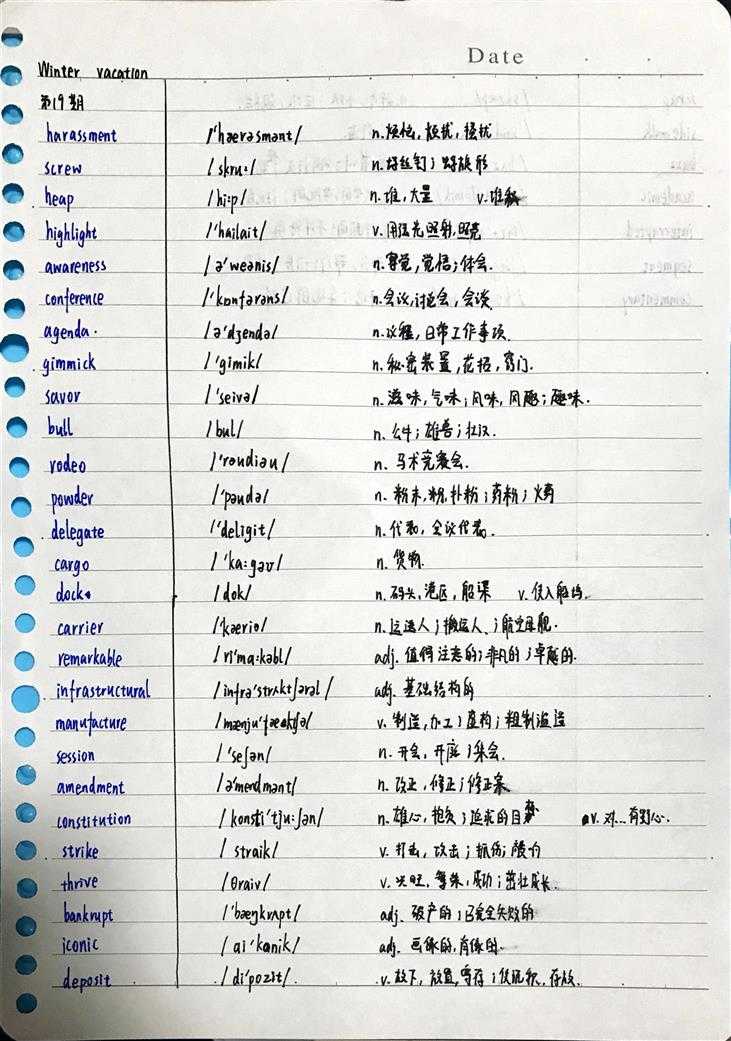 Date
Winter vacation
第19期
harassment /'hærəsmənt/ n. 烦恼, 烦扰, 搔扰
screw /skru:/ n. 螺丝钉; 螺旋形
heap /hi:p/ n. 堆, 大量 v. 堆积
highlight /'hailait/ v. 用强光照射, 照亮
awareness /ə'weənis/ n. 察觉, 觉悟; 体会.
conference /'kɒnfərəns/ n. 会议, 讨论会, 会谈.
agenda. /ə'dʒendə/ n. 议程, 日常工作事项.
gimmick /'gimik/ n. 秘密装置, 花招, 窍门.
savor /'seivə/ n. 滋味, 气味; 风味, 风趣; 趣味.
bull /bul/ n. 公牛; 雄兽; 壮汉.
rodeo /'rəudiəu/ n. 马术竞赛会.
powder /'paudə/ n. 粉末, 粉, 扑粉; 药粉; 火药
delegate /'deligit/ n. 代表, 会议代表.
cargo /'ka:gəʊ/ n. 货物.
dock /dok/ n. 码头, 港区, 船渠 v. 使入船坞.
carrier /'kæriə/ n. 运送人; 搬运人; 航空母舰.
remarkable /ri'ma:kəbl/ adj. 值得注意的; 非凡的; 卓越的.
infrastructural /infrə'strʌktʃərəl/ adj. 基础结构的
manufacture /mænju'fæktʃə/ v. 制造, 加工; 虚构; 粗制滥造
session /'seʃən/ n. 开会, 开庭; 集会.
amendment /ə'mendmənt/ n. 改正, 修正; 修正案.
constitution /konsti'tju:ʃən/ n. 雄心, 抱负; 追求的目 v. 对...有野心.
strike /straik/ v. 打击, 攻击; 抓伤;
thrive /θraiv/ v. 兴旺, 繁殖, 成功; 茁壮成长.
bankrupt /'bæŋkrʌpt/ adj. 破产的; 已完全失败的
iconic /ai'kɒnik/ adj. 画像的, 肖像的.
deposit /di'pozit/. v. 放下, 放置, 寄存; 使沉积, 存放.